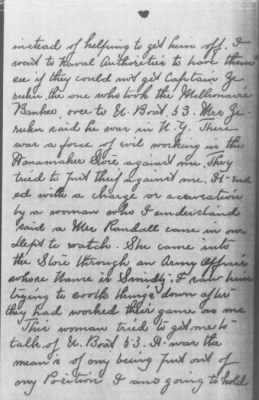 instead of helping to get him off. I
went to Naval Authorities to have them
see if they could not get Captain Ze
the one who took the Millionaire
Banker over to U. Boat 53. Mrs Ze
said he was in N.Y. There
was a force of evil working in the
Wanamaker Store against me. They
tried to put theft against me. It end
ed with a charge or accusation
by a woman who I understand
said a Mrs Randall came in our
Dept to watch. She came into
the Store through an Army Officer
whose name is I saw him
trying to sooth things down after
they had worked their game on me
This woman tried to get me to
talk of U. Boat 53. It was the
means of my being put out of
my Position I am going to hold